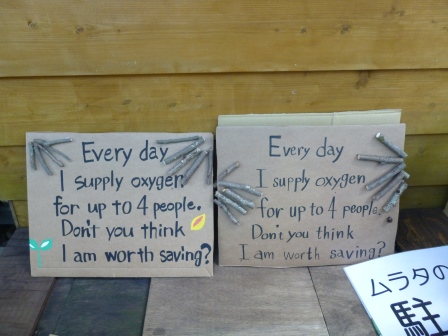 Every day
I supply oxygen
for up to 4 people.
Don't you think
I am worth saving?
Every day
I supply oxygen
for up to 4 people.
Don't you think
I am worth saving?
ムラタの
駐